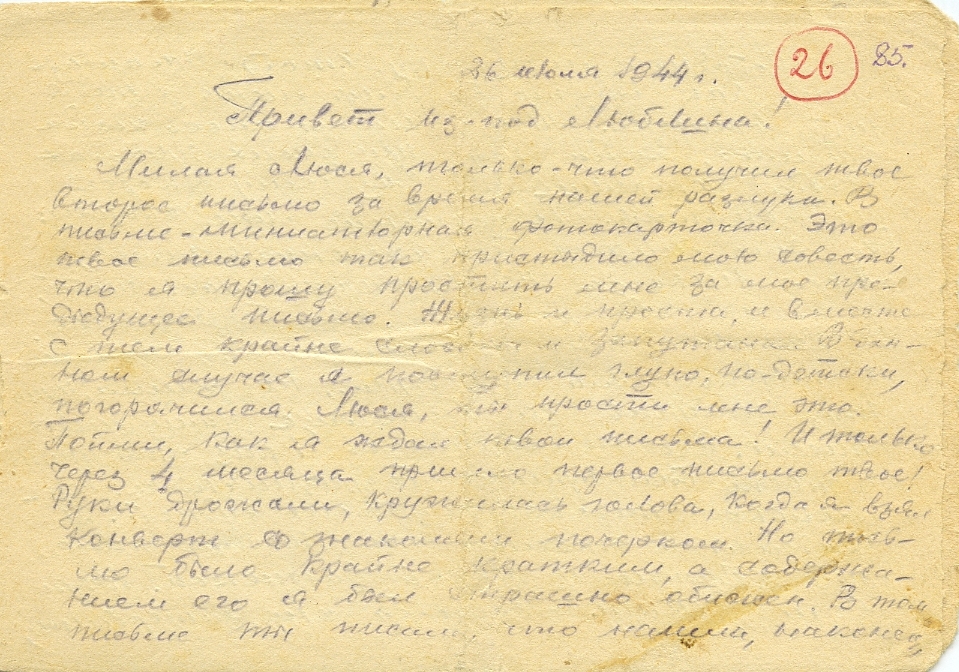 26 85.
26 июля 1944 г.
Привет из-под Люблина!
Милая Люся, только-что получил твое
второе письмо за время нашей разлуки. В
письме - миниатюрная фотокарточка. Это
твое письмо так пристыдило мою совесть,
что я прошу простить мне за мое пре-
дыдущее письмо. Жизнь и проста, и вместе
с тем крайне сложна и запутанна. В дан-
ном случае я поступил глупо, по-детски,
погорячился. Люся, ты прости мне это.
Пойми, как я ждал твои письма! И только
через 4 месяца пришло первое письмо твое!
Руки дрожали, кружилась голова, когда я взял
конверт со знакомым почерком. Но пись-
мо было крайне кратким, а содержа-
нием его я был страшно обижен. В том
письме ты писала, что нашли, наконец,